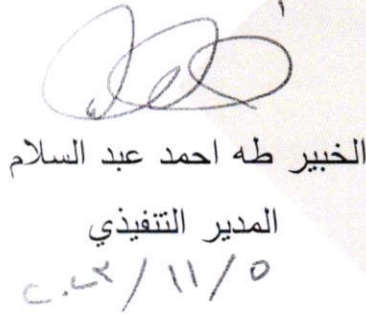 الخبير طه احمد عبد السلام
المدير التنفيذي
٢٠٢٣/١١/٥